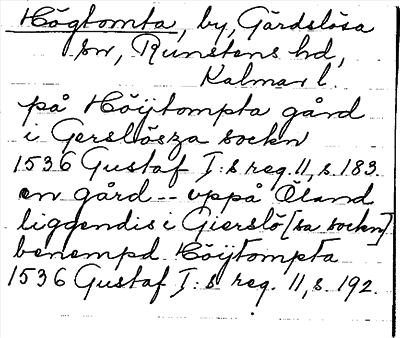 Högtomta, by, Gärdslösa
sn, Runstens hd,
Kalmar l.
på Höÿtompta gård
i Gerslösza sockn
1536 Gustaf I:s reg. 11, s. 183.
en gård -- uppå Öland
liggendis i Gierslö[sa sockn]
benempd Höÿtompta
1536 Gustaf I:s reg. 11, s. 192.